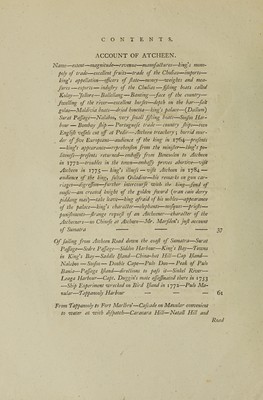 CONTENTS.
ACCOUNT OF ATCHEEN.
Name—extent—municipality—revenue—manufactures—king's mono-
poly of trade—excellent fruits—trade of the Chulias—imports—
king's appellation—officers of state—money—weights and mea-
sures—exports—industry of the Chulias—fishing boats called
Kolay—Jellore—Ballellang—Banting—face of the country—
swelling of the river—excellent horses—depth on the bar—salt
gulue—Maldivia boats—dried boneta—king's palace—(Dallum)
Surat Passage—Nalabou, very small fishing boats—Soosoo Har-
bour—Bombay ship—Portuguese trade—country ships—two
English vessels cut off at Pedir—Atcheen treachery; horrid mur-
der of five Europeans—audience of the king in 1764—presents
—king's appearance—reprehension from the minister—king's po-
liteness—presents returned—embassy from Bencoolen to Atcheen
in 1772—troubles in the town—embassy proves abortive—visit
Atcheen in 1775—king's illness—visit Atcheen in 1784—
audience of the king, sultan Oelodien—his remarks on gun car-
riages—digression—further intercourse with the king—fond of
music—am created knight of the golden sword (oran caio derry
piddang mas)—take baths—king afraid of his nobles—appearance
of the palace—king's character—elephants—mosques—priests—
punishments—strange request of an Atcheener—character of the
Atcheeners—no Chinese at Atcheen—Mr. Marsden's just account
of Sumatra — — — 37
Of sailing from Atcheen Road down the coast of Sumatra—Surat
Passage—Sedre Passage—Siddoo Harbour—King's Bay—Towns
in King's Bay—Saddle Island—China-hat Hill—Cap Island—
Nalabou—Soosoo—Double Cape—Pulo Duo—Peak of Pulo
Baniac—Passage Island—directions to pass it—Sinkel River—
Leaga Harbour—Capt. Duggin's mate assassinated there in 1753
—Ship Experiment wrecked on Bird Island in 1772—Pulo Ma-
nsalar—Tappanooly Harbour — — 61
From Tappanooly to Fort Marlbro'—Cascade on Mansalar convenient
to water at with dispatch—Caracara Hill—Nattall Hill and
Road